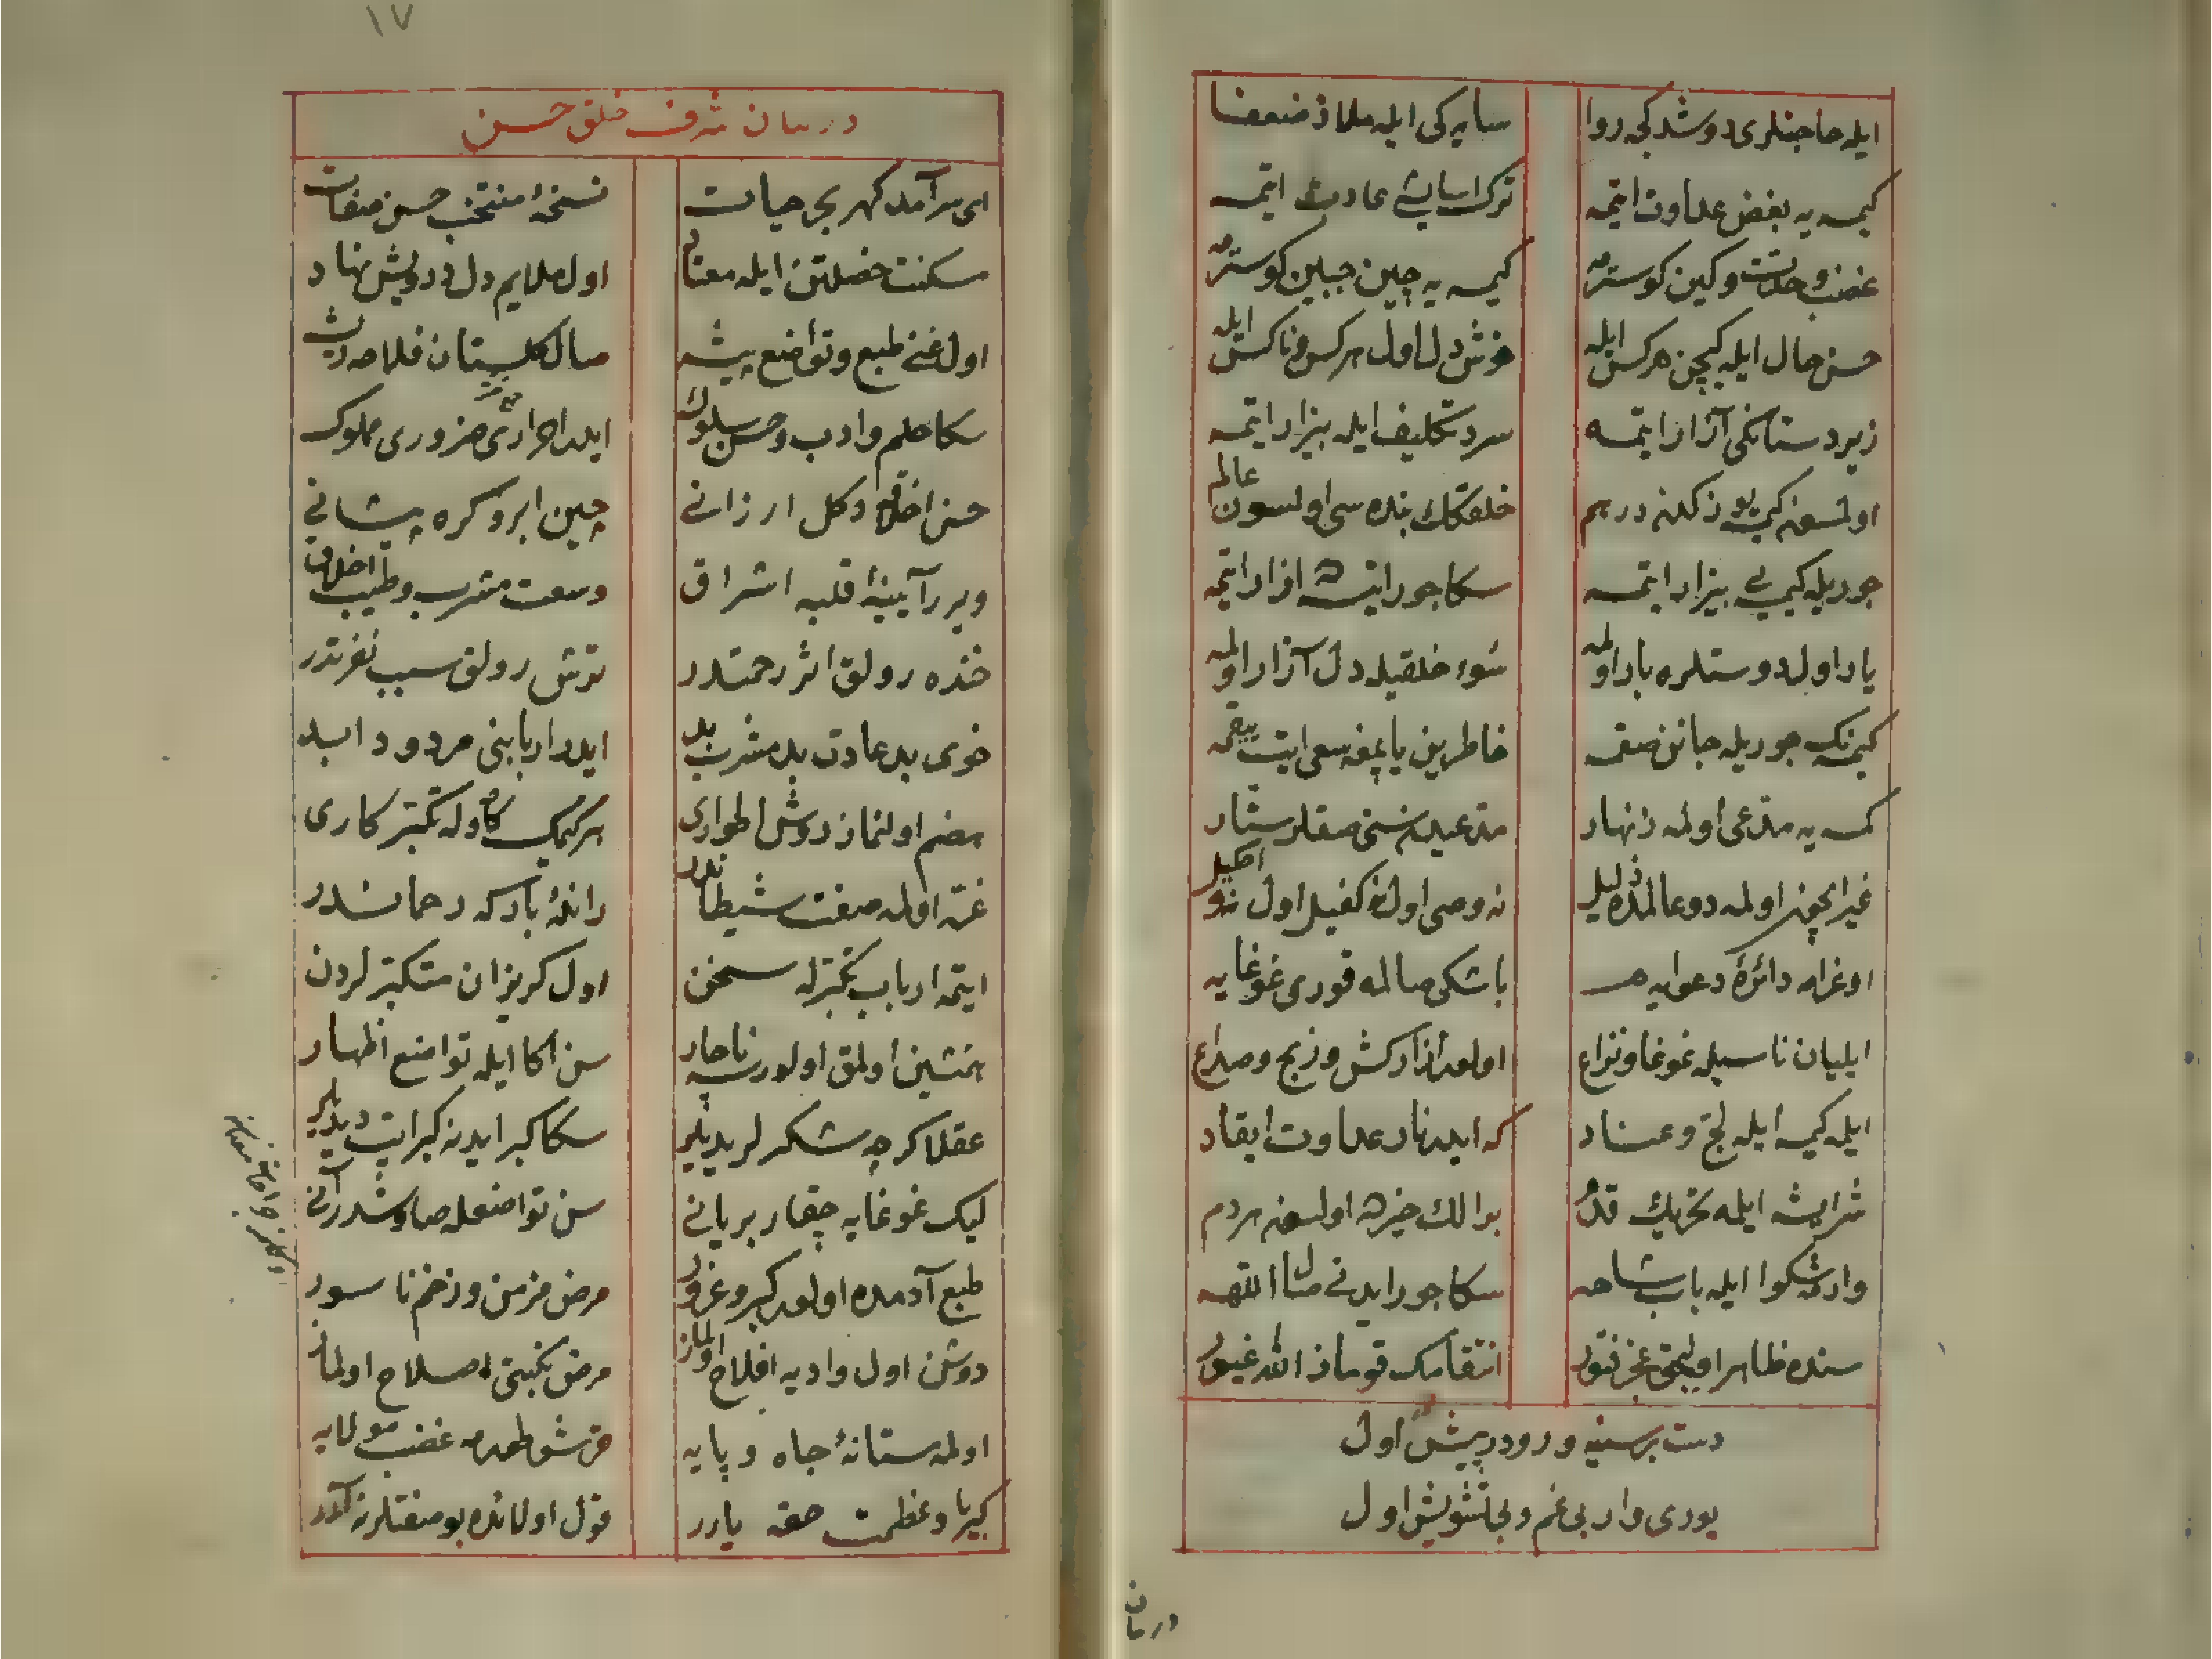 ایله حاجتلری دوشدكجه روا سایه كی ایله ملاذ ضعفا
كیمسه یه بغض عداوت ایتمه ترك اسایش عادت ایتمه
غضب و حدت و كین كوسترمه كیمسه یه چین جبین كوسترمه
حسن حال ایله كچین هركس ایله خوش دل اول هركس و ناكس ایله
زیردستانكی آزار ایتمه سرد تكلیف ایله بیزار ایتمه
اولمسون كیسه ده در هم خلقكك بنده سی اولسون عالم
جوریله كیمسه یی بیزار ایتمه سكا جور ایتسه ده ازار ایتمه
یار اول دوستلره بار اولمه سوء خلقیله دل آزار اولمه
كیمسه نك جوریله جانن صقمه خاطرین یاپمغه سعی ایت ییقمه
كمسه یه مدعی اولمه زنهار
غیر ایچون اولمه دو عالمده ذلیل نه وصی اول نه كفیل اول نه وكیل
اوغرامه دائرۀ دعوایه باشكی صالمه قوری غوغایه
ایلیان ناسیله غوغا و نزاع اولور ازاركش و رنج و صداع
ایلمه كیمسه ایله لج و عناد كه ایدر نار عداوت ایقاد
شر ایشه ایلمه تحریك قدم بو الك خیرده اولسون هردم
وارمه شكوا ایله باب شاهه سكا جور ایدنی صال اللهه
سنده ظاهر اولیجق عجز فتور انتقامك قوماز الله غیور
دست بر سینه و رو در پیش اول
یوری وار بی غم و بی تشویش اول
دربیان
١٧
دربیان شرف خلق حسن
ای سرآمد كهر بحر حیات نسخۀ منتخب حسن صفات
مسكنت خصلتن ایله معتاد اول ملایم دل و درویش نهاد
اول غنی طبع و تواضع پیشه صال كلستان فلاحه ریشه
سكا حلم و ادب و حسن سلوك ایلر احراری ضروری مملوك
حسن اخلاقه دكل ارزانی چین ابرو كره پیشانی
ویرر آیینۀ قلبه اشراق وسعت مشرب و طیب اخلاق
خنده رولق اثر رحمتدر ترش رولق سبب نفرتدر
خوی بد عادت بد مشرب بد ایلر اربابنی مردود ابد
هضم اولنماز روش اطواری هر كیمك كاوله تكبر كاری
غره اولمه صفت شیطاندر راندۀ باركه رحماندر
ایتمه ارباب تكبرله سخن اول كریزان متكبرلردن
همنشین اولمق اولورسه ناچار سن اكا ایله تواضع اظهار
عقلا كرچه شكرلر یدیلر سكا كبر ایدنه كبر ایت دیدیلر
لیك غوغایه چقار بر یانی سن تواضعله صاوشدر آنی
طبع آدمده اولور كبر و غرور مرض مزمن و زخم ناسور
دوشن اول وادیه افلاح اولماز مرض نكبتی اصلاح اولماز
اولمه مستانۀ جاه و پایه
كبریا و عظمت حقه یارر قول اولانده بو صفتلر نه آرر